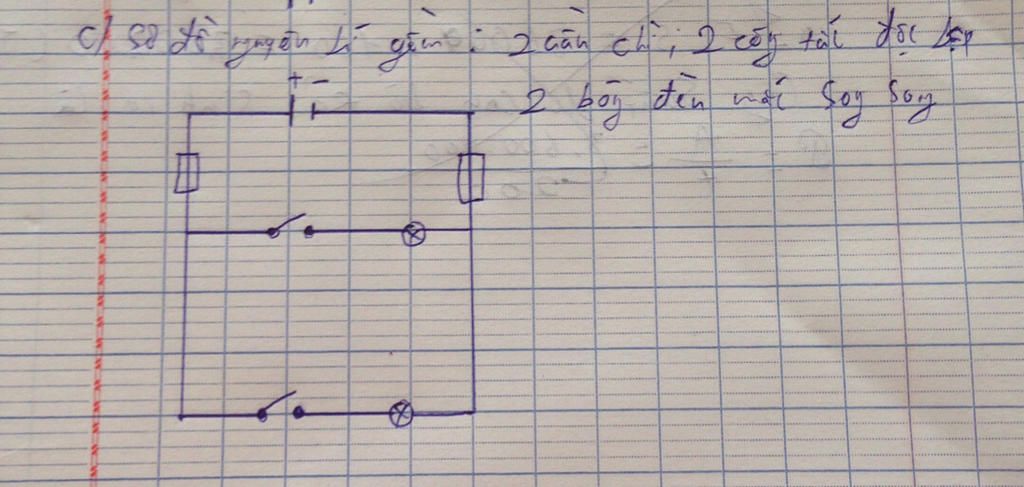 c) Sơ đồ nguyên lí gồm : 2 cầu chì ; 2 công tắc độc lập
+ -
2 bóng đèn mắc song song